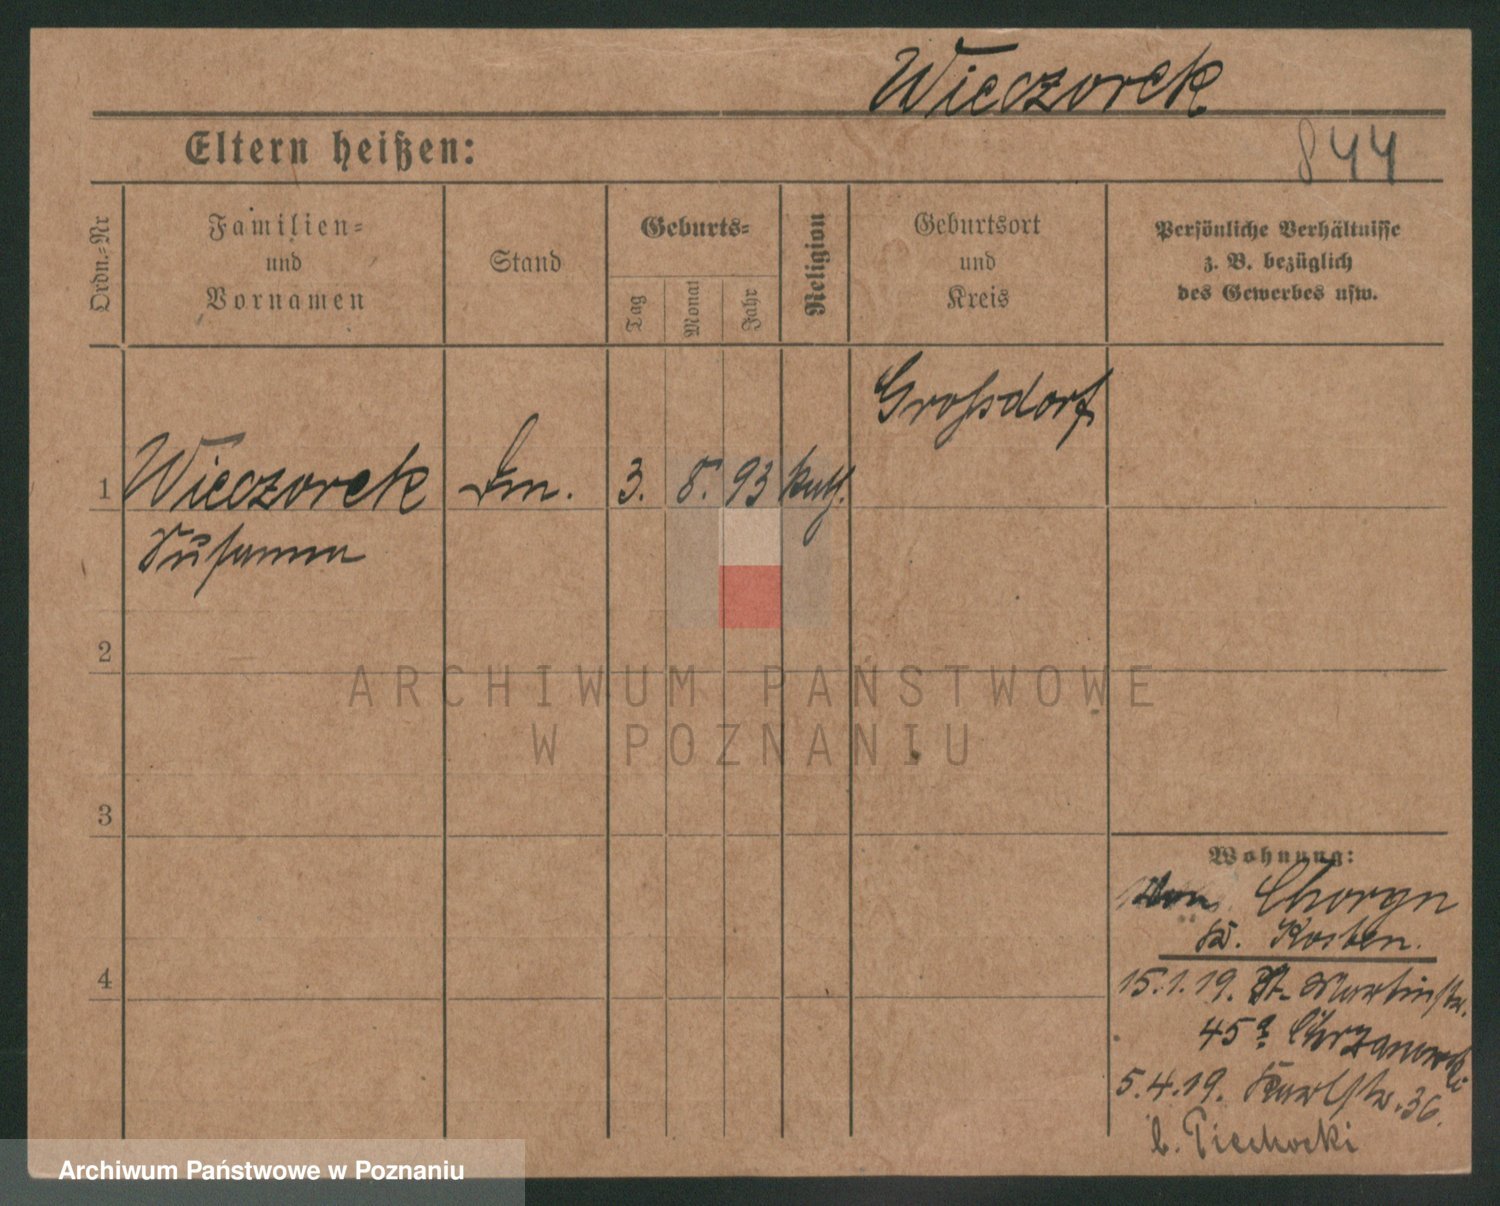 Wieczorek
Eltern heißen:
844
Ordn.-Nr
Familien-
und
Vornamen
Stand
Geburts-
Tag
Monat
Jahr
Religion
Geburtsort
und
Kreis
Persönliche Verhältnisse
z. B. bezüglich
des Gewerbes usw.
Grossdorf
1 Wieczorek 3. 8. 93 kath.
Susanna
2
ARCHIWUM PAŃSTWOWE
W POZNANIU
3
Wohnung:
Von Choryn
Kr. Kosten.
4
15.1.19. St. Martinstr.
45a Chrzanowski
5.4.19. Karlstr. 36.
b. Piechocki
Archiwum Państwowe w Poznaniu